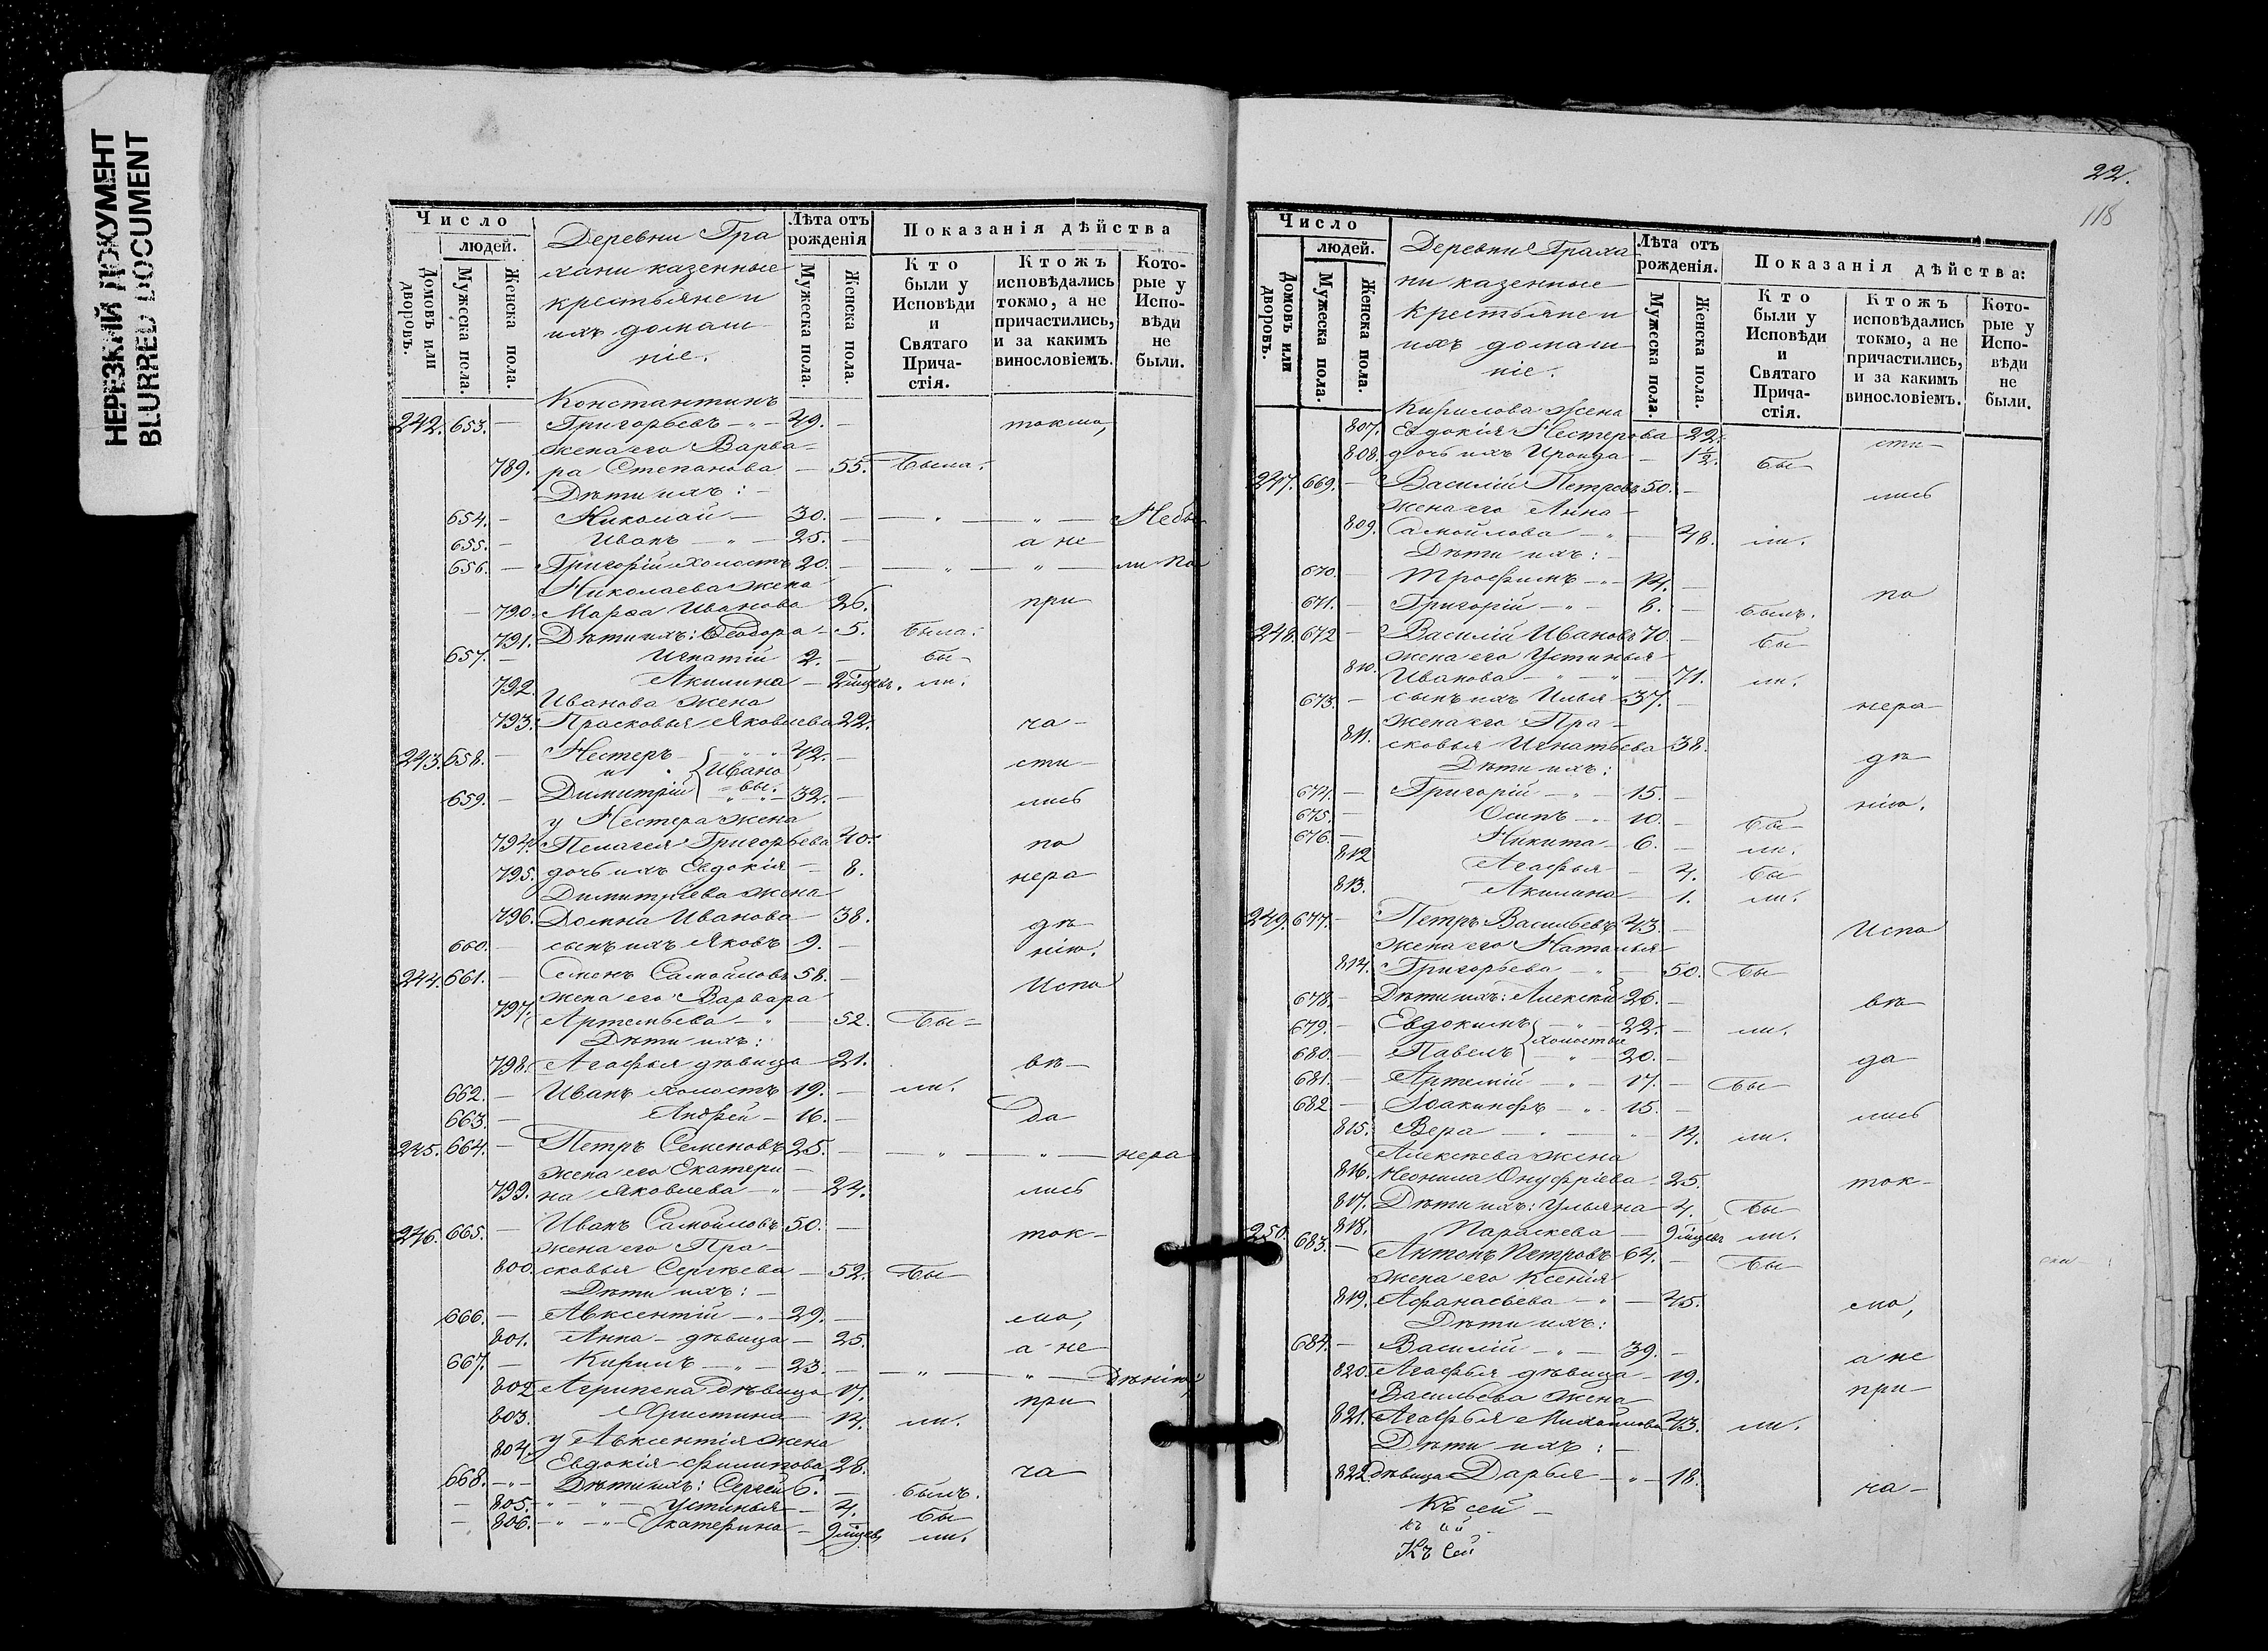 НЕРЕЗКИЙ ДОКУМЕНТ
BLURRED DOCUMENT
Число
людей.
Домовъ или дворовъ.
Мужеска пола.
Женска пола.
Деревни Гра
хани казенные
крестьяне и
ихъ домаш
ніе.
Лѣта отъ рожденія
Мужеска пола.
Женска пола.
Показанія дѣйства
Кто были у Исповѣди и Святаго Прича-стія.
Ктожъ исповѣдались токмо, а не причастились, и за какимъ винословіемъ.
Кото-рые у Испо-вѣди не были.
Константинъ
242. 653. — Григорьевъ — " — 49. — токмо,
жена его Варва-
789. ра Степанова — 55. была.
Дѣти ихъ: —
654. — Николай — 30. — — " — — " — Небы
655. — Иванъ — " — 25. — а не
656. — Григорій холостъ 20. — — " — — " — ли по
Николаева жена
— 790. Марѳа Иванова 26. при
791. Дѣти ихъ: Ѳеодора — 5. была.
657. — Игнатій 2. — бы-
792. Акилина — 2 мѣсцевъ. ли.
Иванова жена
793. Прасковья Яковлева 22. ча-
243. 658. — Нестеръ — " — " 42. — сти-
и Ивано
659. — Димитрій =вы. — " — " 32. — лись
у Нестера жена
794. Пелагея Григорьева 40. по
795. дочь ихъ Евдокія — 8. нера
Димитріева жена
796. Домна Иванова — 38. дѣ
660. — сынъ ихъ Яковъ 9. — нію.
244. 661. — Семенъ Самойловъ 58. — Испо
жена его Варвара
797. Артемьева — " — 52. бы-
Дѣти ихъ:
798. Агафья дѣвица — 21. вѣ-
662. — Иванъ холостъ 19. — ли.
663. — Андрей — 16. — да
245. 664. — Петръ Семеновъ 25. — — " — — " — нера
жена его Екатери
799. на Яковлева — " — 24. лись
246. 665. — Иванъ Самойловъ 50. — ток-
жена его Пра-
800. сковья Сергѣева — 52. бы-
Дѣти ихъ: —
666. — Авксентій — " — 29. — мо,
801. Анна — дѣвица — 25. а не
667. — Кирилъ — " — 23. — — " — — " — дѣнію,
802. Агрипена дѣвица — 17. при
803. Христина — 14. ли.
804. у Авксентія жена
Евдокія Филипова 28. ча
668. — " — Дѣти ихъ: Сергѣй 6. — былъ.
— 805. — " — " — Устинья — 4. бы-
— 806. — " — " — Екатерина — 9 мѣсцев. ли.
22.
118
Число
людей.
Домовъ или дворовъ.
Мужеска пола.
Женска пола.
Деревни Граха
ни казенные
крестьяне и
ихъ домаш
ніе.
Лѣта отъ рожденія.
Мужеска пола.
Женска пола.
Показанія дѣйства:
Кто были у Исповѣди и Святаго Прича-стія.
Ктожъ исповѣдались токмо, а не причастились, и за какимъ винословіемъ.
Кото-рые у Испо-вѣди не были.
Кирилова жена
807. Евдокія Нестерова — 22. сти-
808. дочь ихъ Ироида — 1½. бы-
247. 669. — Василій Петровъ 50. — лись
жена его Анна-
809. Самойлова — " — 48. ли.
Дѣти ихъ: —
670. — Трофимъ — " — 14. — по
671. — Григорій — " — 8. — былъ.
248. 672 — Василій Ивановъ 70. — бы-
жена его Устинья
810. Иванова — " — " — 71. ли.
673. — сынъ ихъ Илья — 37. — нера-
жена его Пра-
811. сковья Игнатьева — 38. дѣ
Дѣти ихъ:
674. — Григорій — " — 15. — нію.
675. — Осипъ — " 10. — бы-
676. — Никита — 6. — ли.
812. Агафья — 4. бы
813. Акилина — 1. ли.
249. 677. — Петръ Васильевъ 43. — Испо
жена его Наталья
814. Григорьева — " — 50. бы-
678. — Дѣти ихъ: Алексѣй 26. — вѣ-
679. — Евдокимъ — " — 22. — ли.
холостые
680. — Павелъ — " — 20. — да
681. — Артемій — " — 17. — бы-
682 — Іоакинфъ — " — 15. — лись
815. Вера — " — " 14. ли.
Алексѣева жена
816. Неонила Онуфріева — 25. ток-
817. Дѣти ихъ: Ульяна — 4. бы
818. Параскева — 9 мѣсцев ли.
250. 683. — Антонъ Петровъ 64. — бы-
жена его Ксенія
819. Афанасьева — " — 45. мо,
Дѣти ихъ:
684. — Василій — " — 39. — а не
820. Агафья дѣвица — 19. при-
Васильева жена
821. Агафья Михайлова 43. ли.
Дѣти ихъ: —
822. дѣвица Дарья — " — 18. ча-
Къ сей —
Къ сей